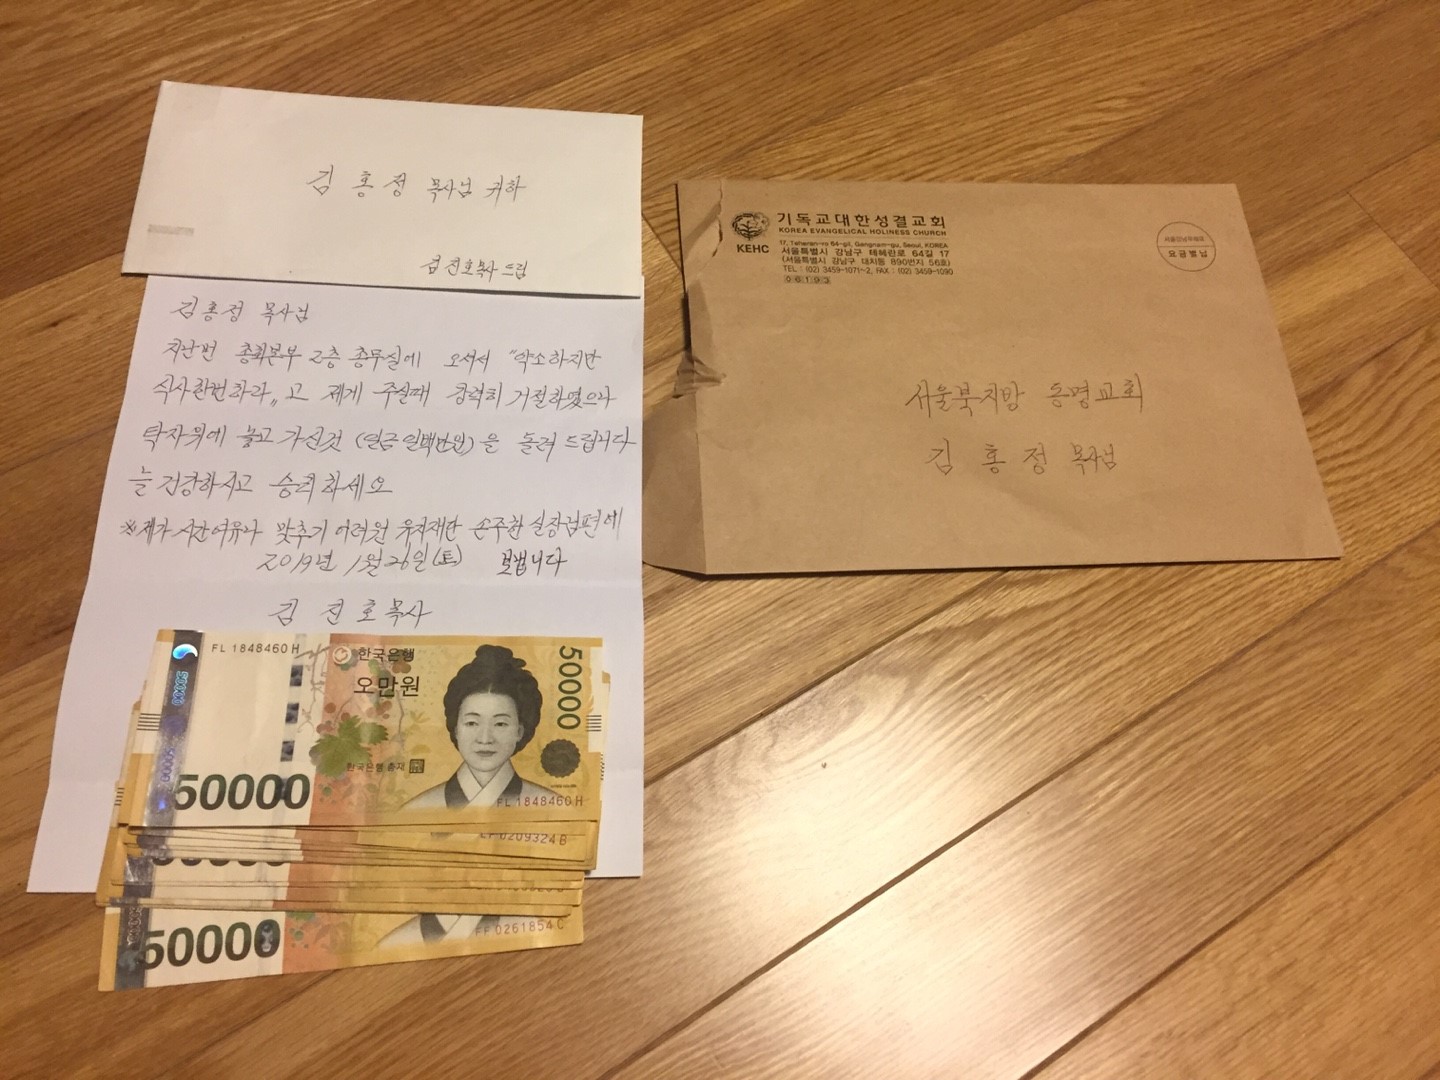 김홍정 목사님 귀하
김진호목사 드림
김홍정 목사님
지난번 총회본부 2층 총무실에 오셔서 "약소하지만
식사한번하라"고 제게 주실때 강력히 거절하였으나
탁자위에 놓고 가신것 (일금 일백만원)을 돌려 드립니다
늘 건강하시고 승리하세요
※제가 시간여유나 맞추기 어려워 유지재단 손주환 실장님편에
2019년 1월 26일(토) 보냅니다
김진호목사
FL 1848460 H
한국은행
오만원
50000
50000
한국은행 총재
50000
50000
FL 1848460 H
LF 0209324 B
50000
50000
FF 0261854 C
기독교대한성결교회
KOREA EVANGELICAL HOLINESS CHURCH
KEHC
17, Teheran-ro 64-gil, Gangnam-gu, Seoul, KOREA
서울특별시 강남구 테헤란로 64길 17
(서울특별시 강남구 대치동 890번지 56호)
TEL : (02) 3459-1071~2, FAX : (02) 3459-1090
06193
서울강남우체국
요금별납
서울북지방 동명교회
김홍정 목사님